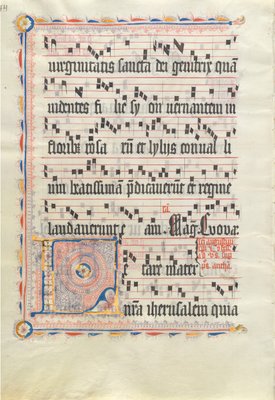 uirginitatis sancta dei genitrix quā
uidentes fi lie sy on uernantem in
floribꝫ rosa rū et lylijs conual li
um beatissimā p̄dicauerūt et regine
laudauerunt e am Mag
mater
nr̄a iherusalem quia